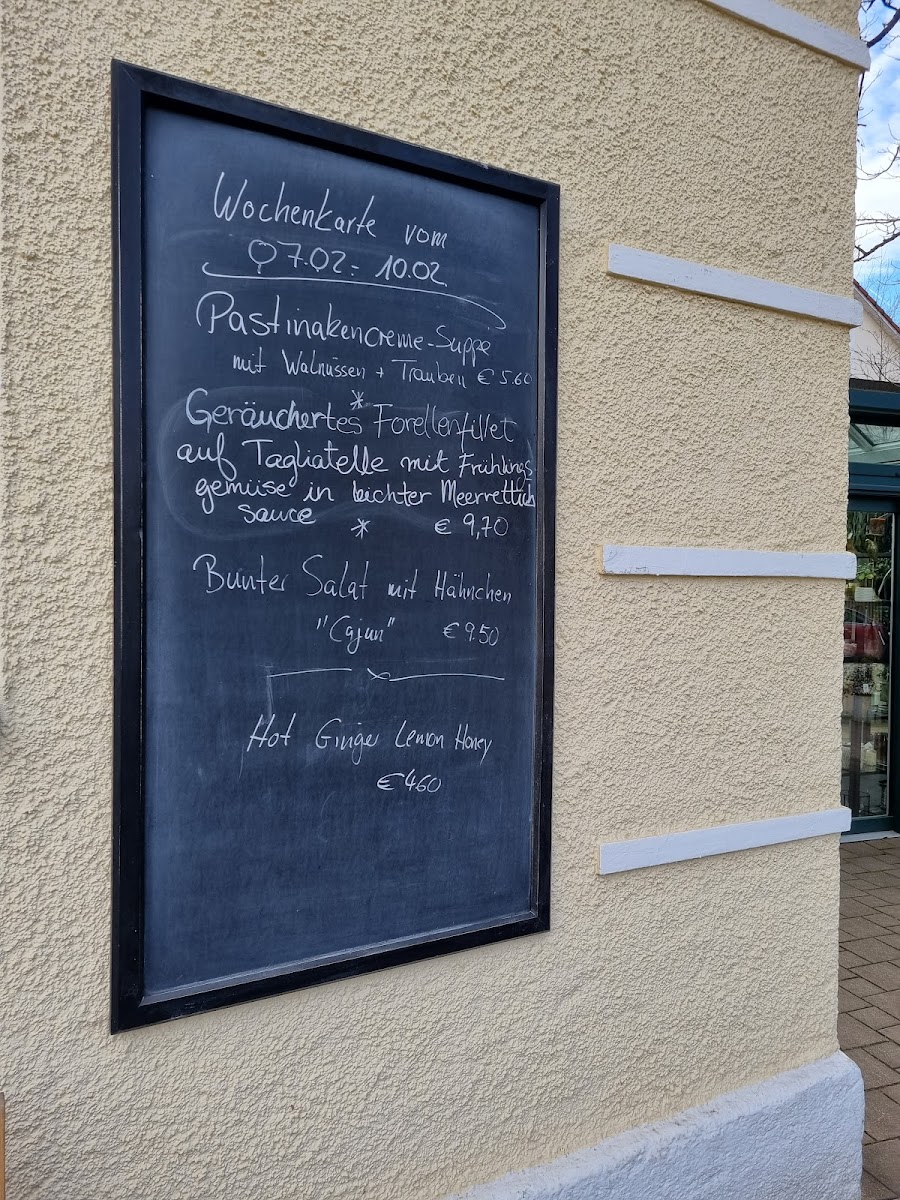 Wochenkarte vom
07.02 - 10.02
Pastinakencreme-Suppe
mit Walnüssen + Trauben € 5.60
*
Geräuchertes Forellenfillet
auf Tagliatelle mit Frühlings-
gemüse in leichter Meerrettich
sauce * € 9,70
Bunter Salat mit Hähnchen
"Cajun" € 9.50
Hot Ginger Lemon Honey
€ 460